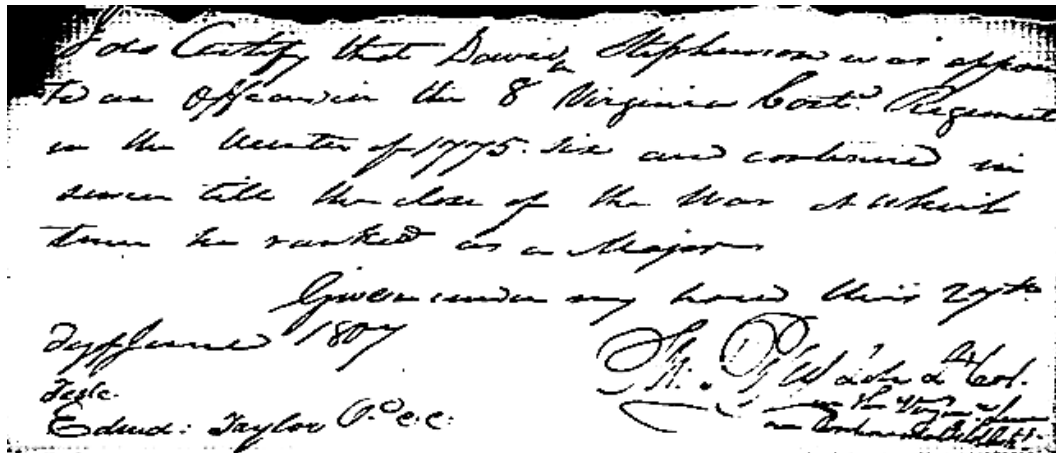 I do Certify that David Stephenson was appoin
ted an Officer in the 8 Virginia Cont.l Regiment
in the Winter of 1775. Six and continued in
service till the close of the War at which
time he ranked as a Major
Given under my hand this 27th
Day of June 1807
Teste.
Edmd: Taylor
Col.